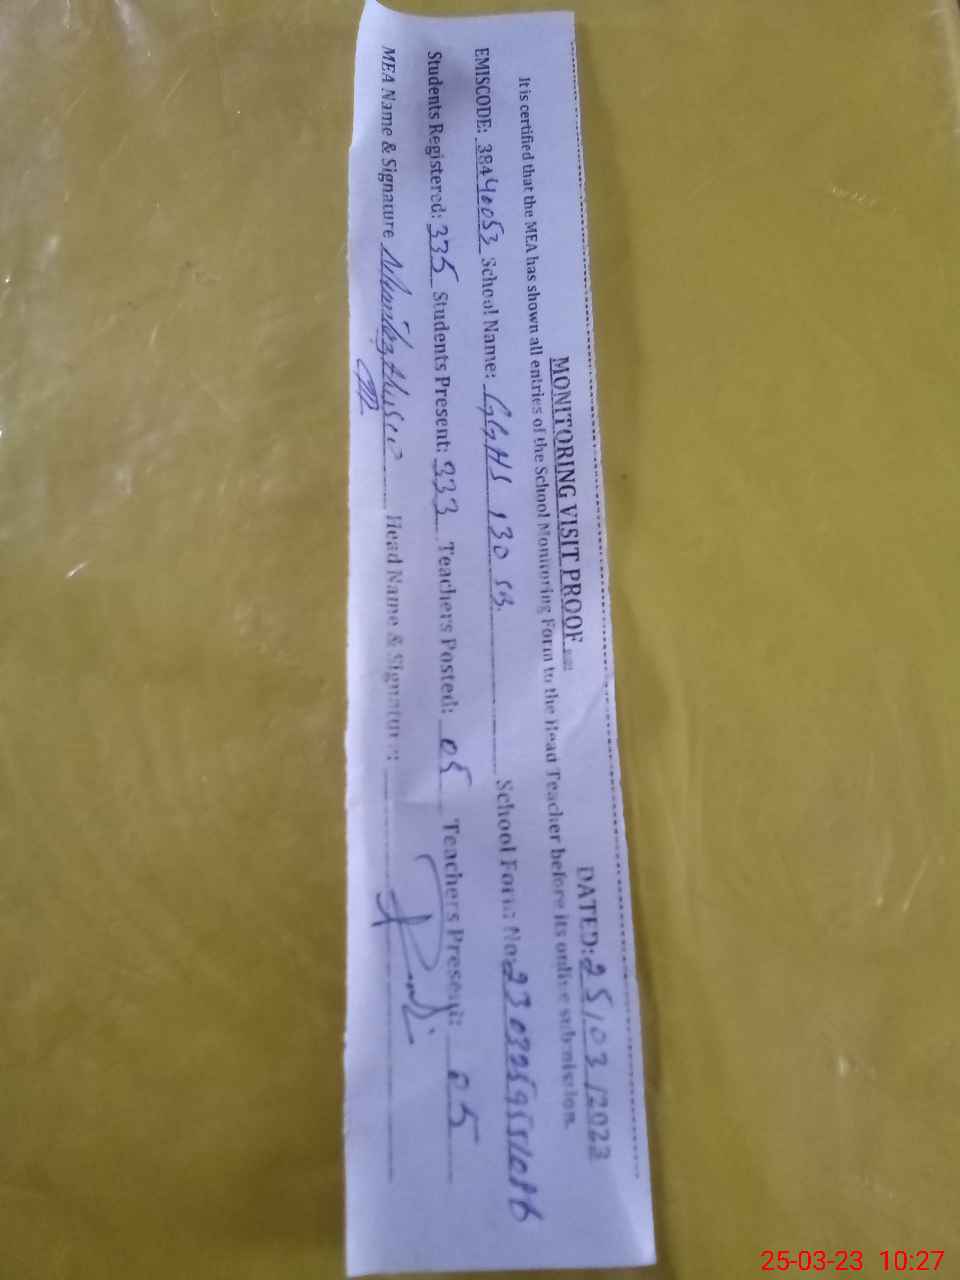 MONITORING VISIT PROOF
DATED: 25/03/2023
It is certified that the MEA has shown all entries of the School Monitoring Form to the Head Teacher before its online submission.
EMISCODE: 38440053 School Name: GGHS 130 SB. School Form No:
Students Registered: 335 Students Present: 333 Teachers Posted: 05 Teachers Present: 05
MEA Name & Signature Head Name & Signature:
25-03-23 10:27